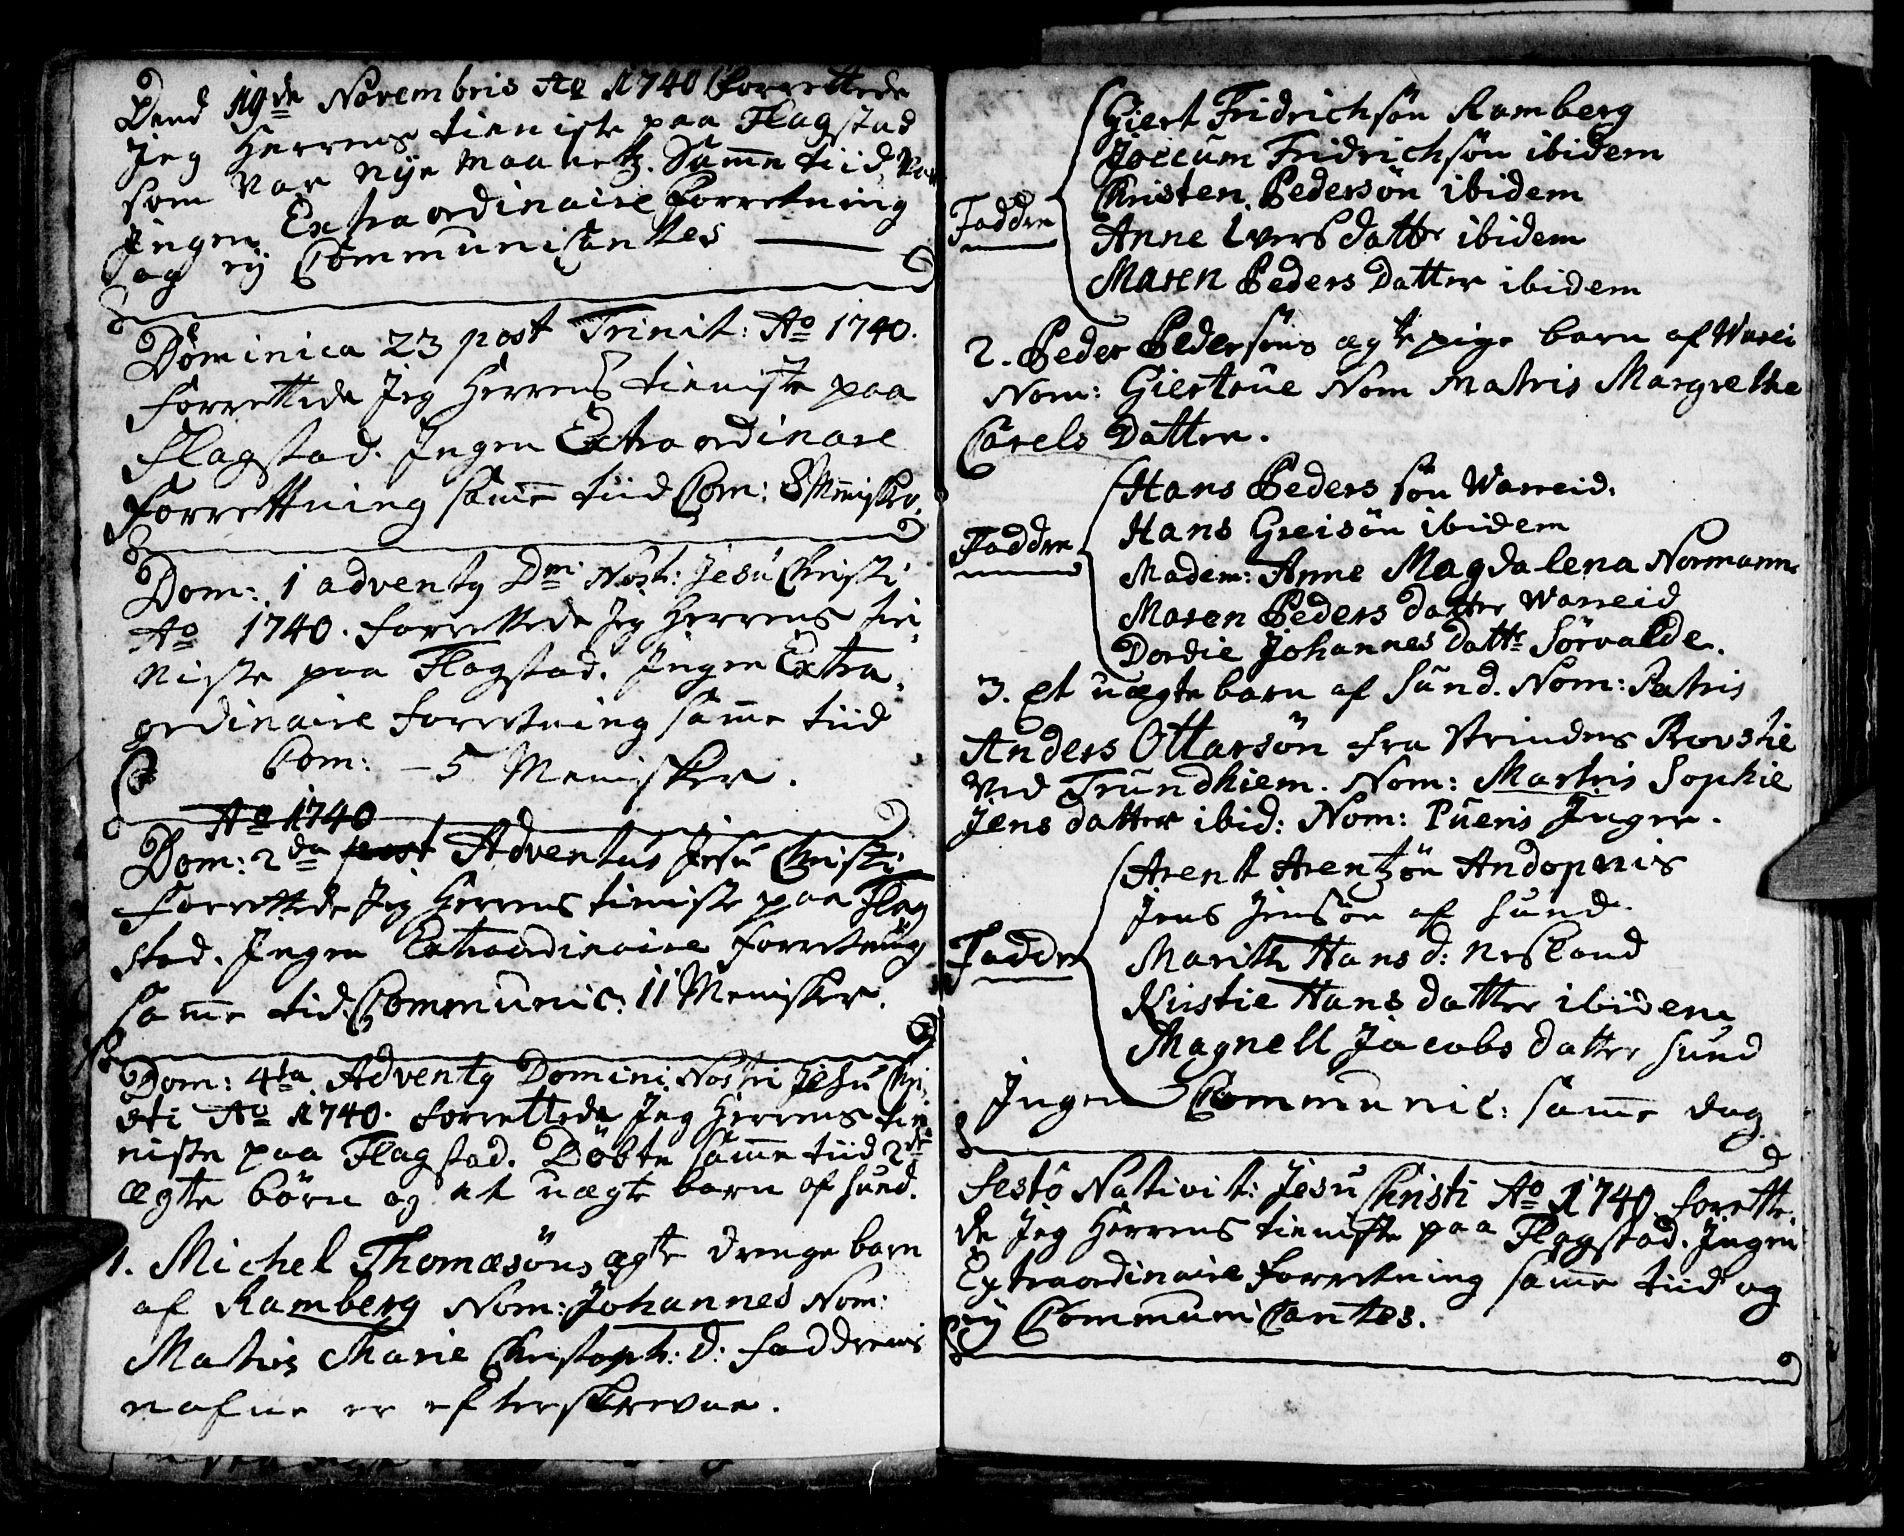 Dend 19de Novembris Ao 1740 Forrettede
Jeg Herrens tieniste paa Flagstad
som var nye maanetz. Samme tiid var
Jngen Extraordinaire Forretning
og ey Communicantes
Dominica 23 post Trinit: Ao 1740.
Forrettede Jeg Herrens tieniste paa
Flagstad. Jngen Extraordinare
Forrettning samme tiid Com: 8 Menisker.
Dom: 1 adventq Dm: Nost: Jesu Christi
Ao 1740. forrettede Jeg Herrens tie-
niste paa Flagstad. Jngen Extra-
ordinaire forretning samme tiid
Com: - 5 Menisker.
Ao 1740
Dom: 2da post Adventus Jesu Christi
Forrettede Jeg Herrens tieniste paa Flag
stad. Jngen Extraordinaire forretning
samme tid. Communic: 11 Menisker.
Dom: 4ta Adventq Domini Nostri Jesu Chri-
sti Ao 1740. forrettede Jeg Herrens tie-
niste paa Flagstad. Döbte samme tiid 2de
ægte börn og et uægte barn af sund.
1. Michel Thomæsöns ægte drenge barn
af Ramberg Nom: Johannes Nom:
Matris Marie Christoph: D: faddernis
nafne er efterskrevne.
Giert Fridrichsön Ramberg
Joccum Fridrichsön ibidem
Christen Pedersön ibidem
Faddre
Anne Ivers datter ibidem
Maren Peders Datter ibidem
2. Peder Pedersöns ægte pige barn af Warei
Nom: Giertrue Nom Matris Margrethe
Carels Datter.
Hans Peders sön Warreid.
Hans Greisön ibidem
Faddre
Madem: Anne Magdalena Normann
Maren Peders datter Warreid
Dordie Johannes datter Sörvalde.
3. et uægte barn af Sund. Nom: Patris
Anders Ottarsön fra Strindens Provstie
ved Trundhiem. Nom: Martris Sophie
Jens datter ibid: Nom: Pueris Jnger.
Arent Arentzön Andopnis
Jens Jensön af sund.
Faddre
Marith Hans d: Nesland
Kirstie Hans datter ibidem
Magnell Jacobs datter sund
Jngen Communic: samme dag.
Festo Nativit: Jesu Christi Ao 1740. forette-
de Jeg Herrens tieniste paa Flagstad. Jngen
Extraordinaire forretning samme tiid og
ey Communicantes.